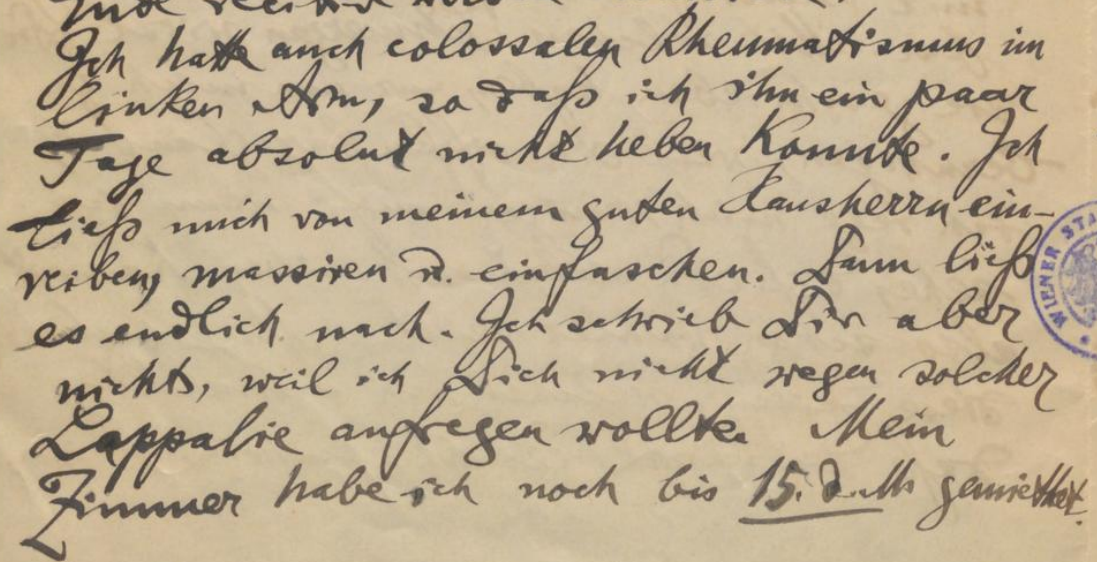 Ich hatte auch colossalen Rheumatismus im
linken Arm, so daß ich ihn ein paar
Tage absolut nicht heben konnte. Ich
ließ mich von meinem guten Hausherrn ein-
reiben, massiren u. einfaschen. Dann ließ
es endlich nach. Ich schrieb Dir aber
nichts, weil ich Dich nicht wegen solcher
Lappalie aufregen wollte. Mein
Zimmer habe ich noch bis 15. d. Ms gemiethet.
WIENER STA